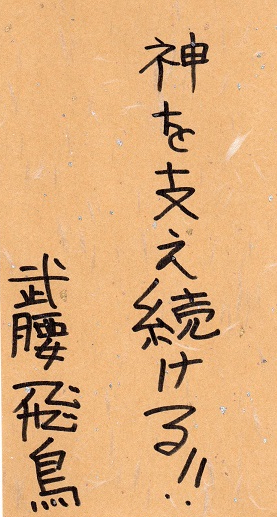 神を支え続ける!!
武腰飛鳥